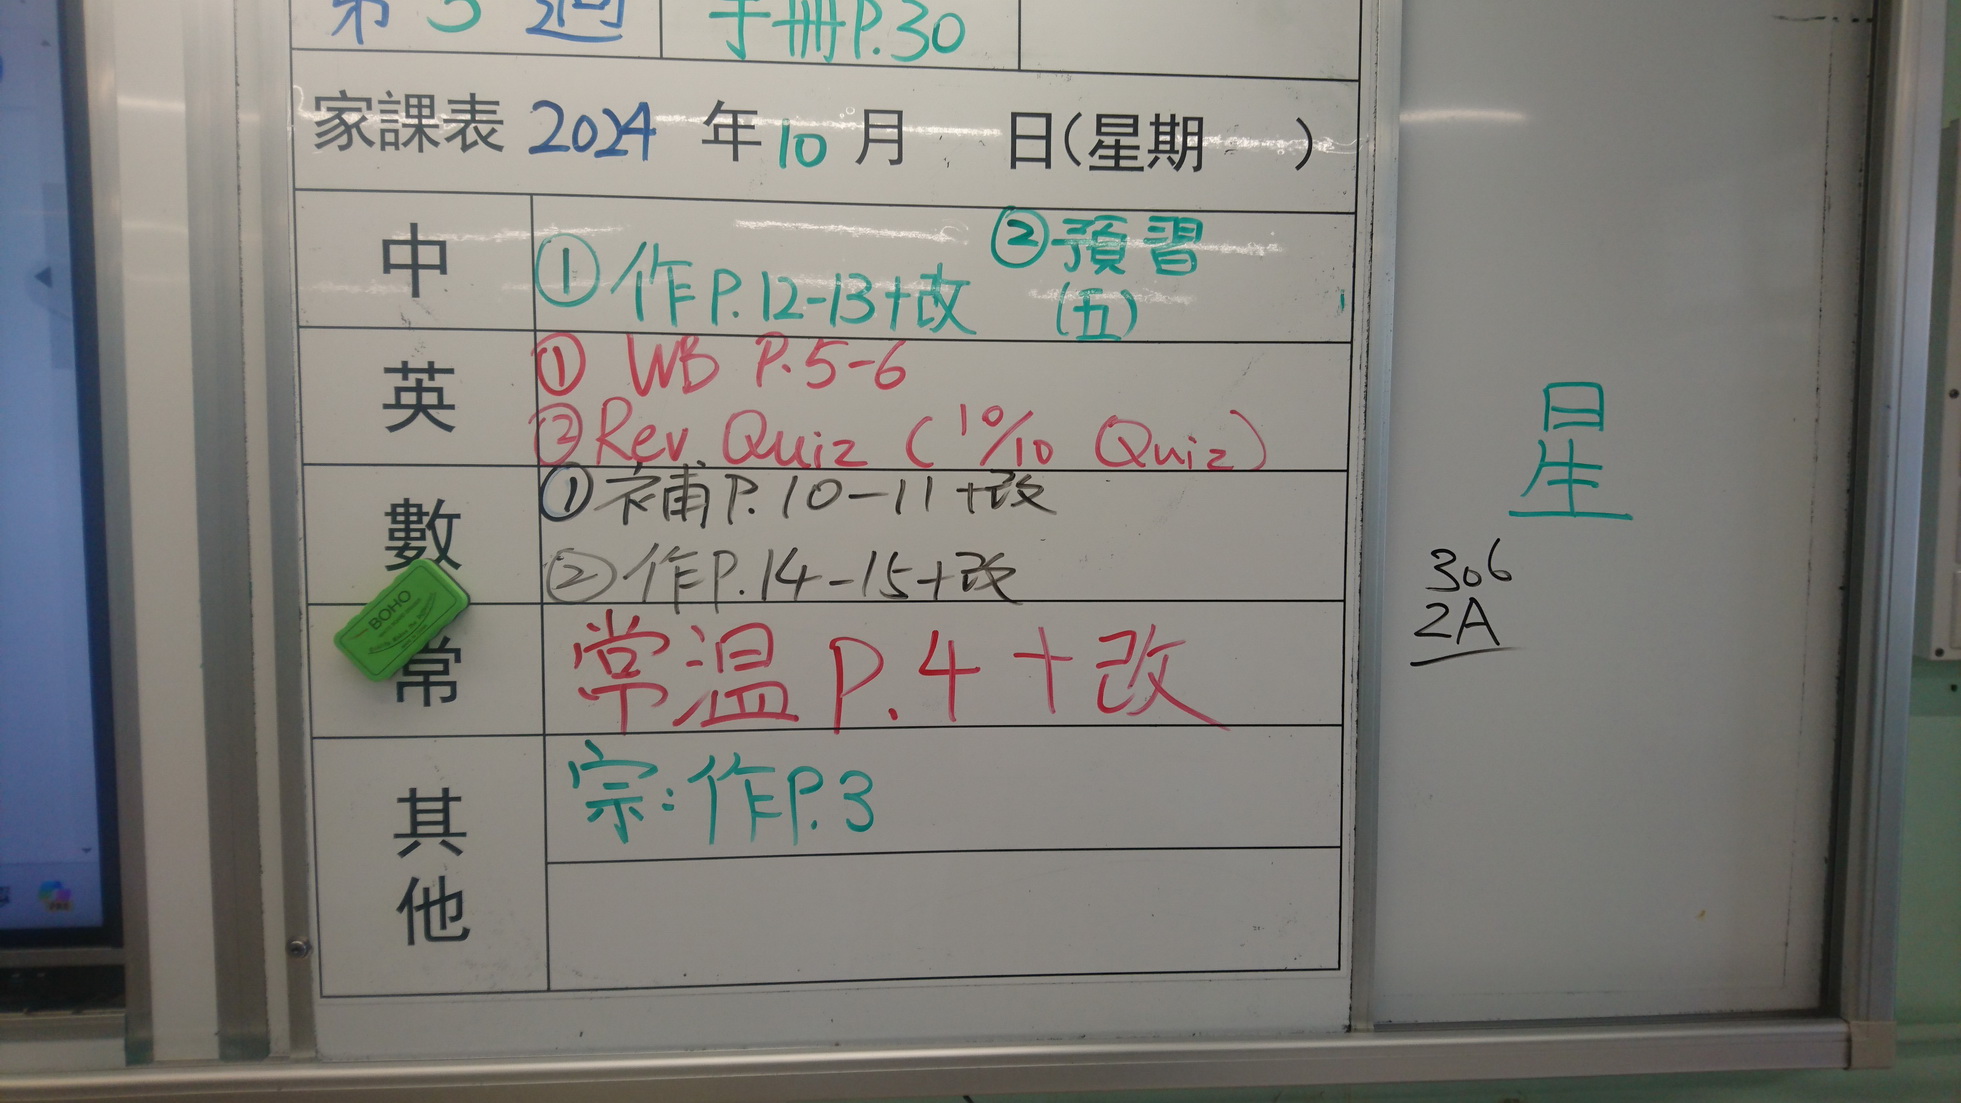 第5週 手冊P.30
家課表 2024 年10月 日(星期 )
中 ①作P.12-13+改 ②預習
(五)
英 ① WB P.5-6
②Rev. Quiz (10/10 Quiz)
數 ①補P.10-11+改
②作P.14-15+改
BOHO
常 常溫P.4+改
其他 宗:作P.3
星
306
2A